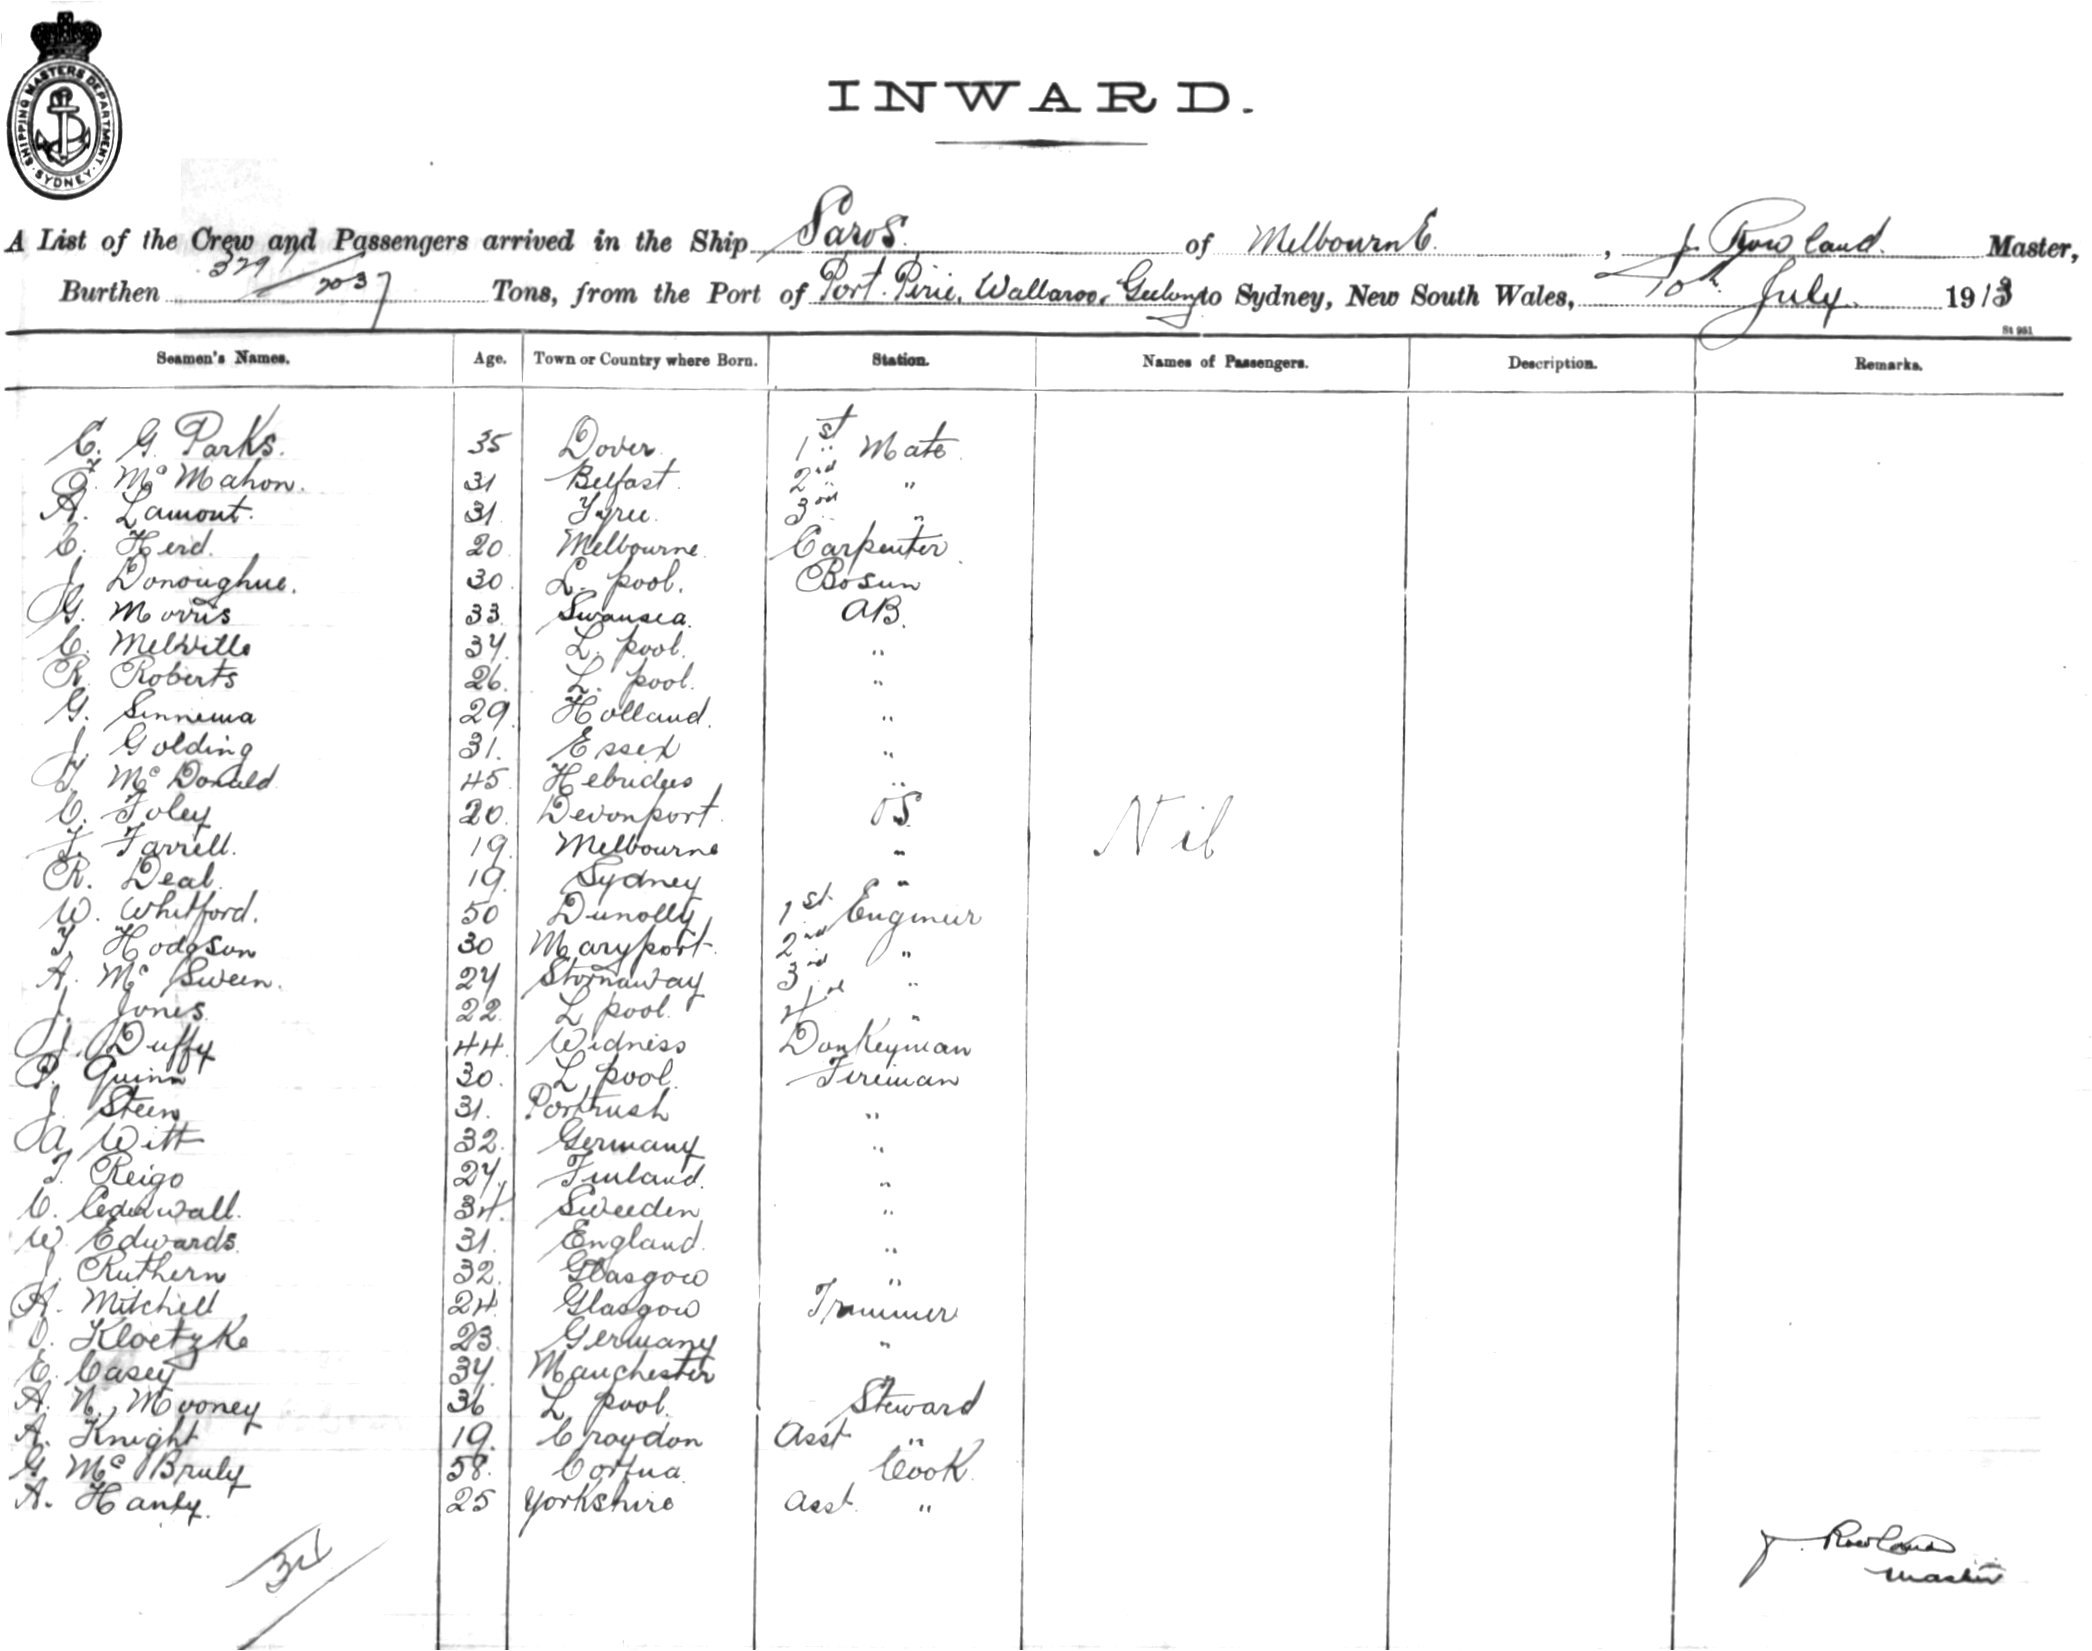 SHIPPING MASTERS DEPARTMENT · SYDNEY ·
INWARD.
A List of the Crew and Passengers arrived in the Ship Saros. of MelbournE. , J. Rowland. Master,
Burthen 3291/2037 Tons, from the Port of Port. Pirie, Wallaroo, Geelong to Sydney, New South Wales, 10th July 1913
St 981
Seamen's Names. Age. Town or Country where Born. Station. Names of Passengers. Description. Remarks.
C. G. Parks. 35 Dover. 1st Mate
Mc Mahon. 31 Belfast. 2nd "
A. Lamont. 31 Tyree. 3rd "
C. Herd. 20 Melbourne. Carpenter.
J. Donoughue. 30 L. pool. Bosun
G. Morris 33 Swansea. AB.
C. Melville 34 L. pool. "
R. Roberts 26. L. pool. "
G. Sinnema 29 Holland. "
J. Golding 31. Essex "
Mc Donald 45 Hebrides "
C. Foley 20. Devonport. OS.
F. Farrell. 19 Melbourne "
R. Deal. 19. Sydney "
W. Whitford. 50 Dunolly 1st Engineer
T. Hodgson 30 Maryport. 2nd "
A. Mc Sween. 24 Stornaway 3rd "
J. Jones. 22. L pool. 4 "
J. Duffy 44. Widness Donkeyman
P. Quinn 30. L pool. Fireman
J. Steen 31. Portrush "
A. Witt 32. Germany "
T. Reigo 24. Finland. "
C. Cederwall. 34. Sweeden "
W. Edwards. 31. England. "
J. Ruthern 32. Glasgow "
A. Mitchell 24. Glasgow Trimmer
Kloetzke 23. Germany "
E. Casey 34. Manchester "
A. N. Mooney 36 L pool. Steward
A. Knight 19. Croydon Asst "
G. Mc Bruly 58. Corfua. Cook.
A. Hanly. 25 Yorkshire Asst. "
Nil
J. Rowland
Master